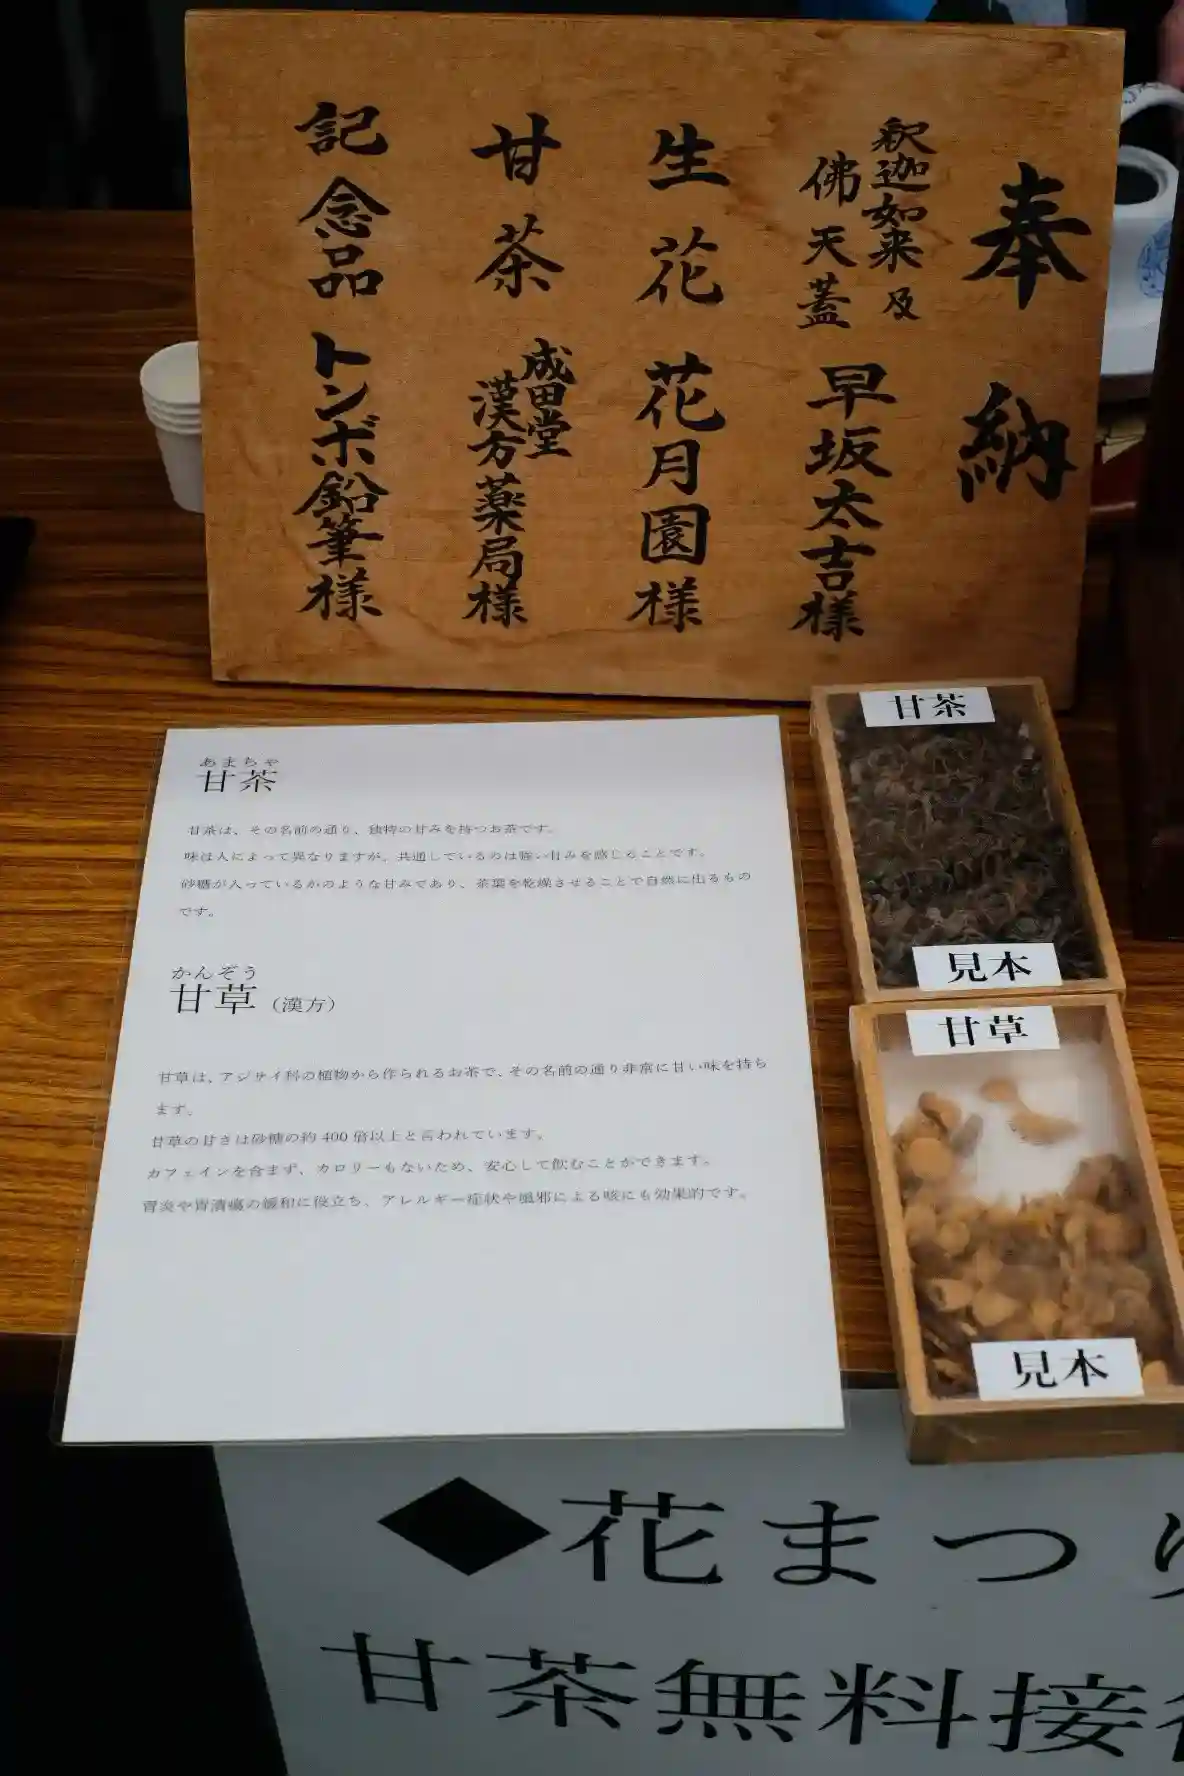 奉納
釈迦如来及
佛天蓋
早坂太吉様
生花 花月園様
甘茶 成田堂
漢方薬局様
記念品 トンボ鉛筆様
あまちゃ
甘茶
甘茶は、その名前の通り、独特の甘みを持つお茶です。
味は人によって異なりますが、共通しているのは強い甘みを感じることです。
砂糖が入っているかのような甘みであり、茶葉を乾燥させることで自然に出るもの
です。
かんぞう
甘草（漢方）
甘草は、アジサイ科の植物から作られるお茶で、その名前の通り非常に甘い味を持ち
ます。
甘草の甘さは砂糖の約 400 倍以上と言われています。
カフェインを含まず、カロリーもないため、安心して飲むことができます。
胃炎や胃潰瘍の緩和に役立ち、アレルギー症状や風邪による咳にも効果的です。
甘茶
見本
甘草
見本
◆花まつり
甘茶無料接